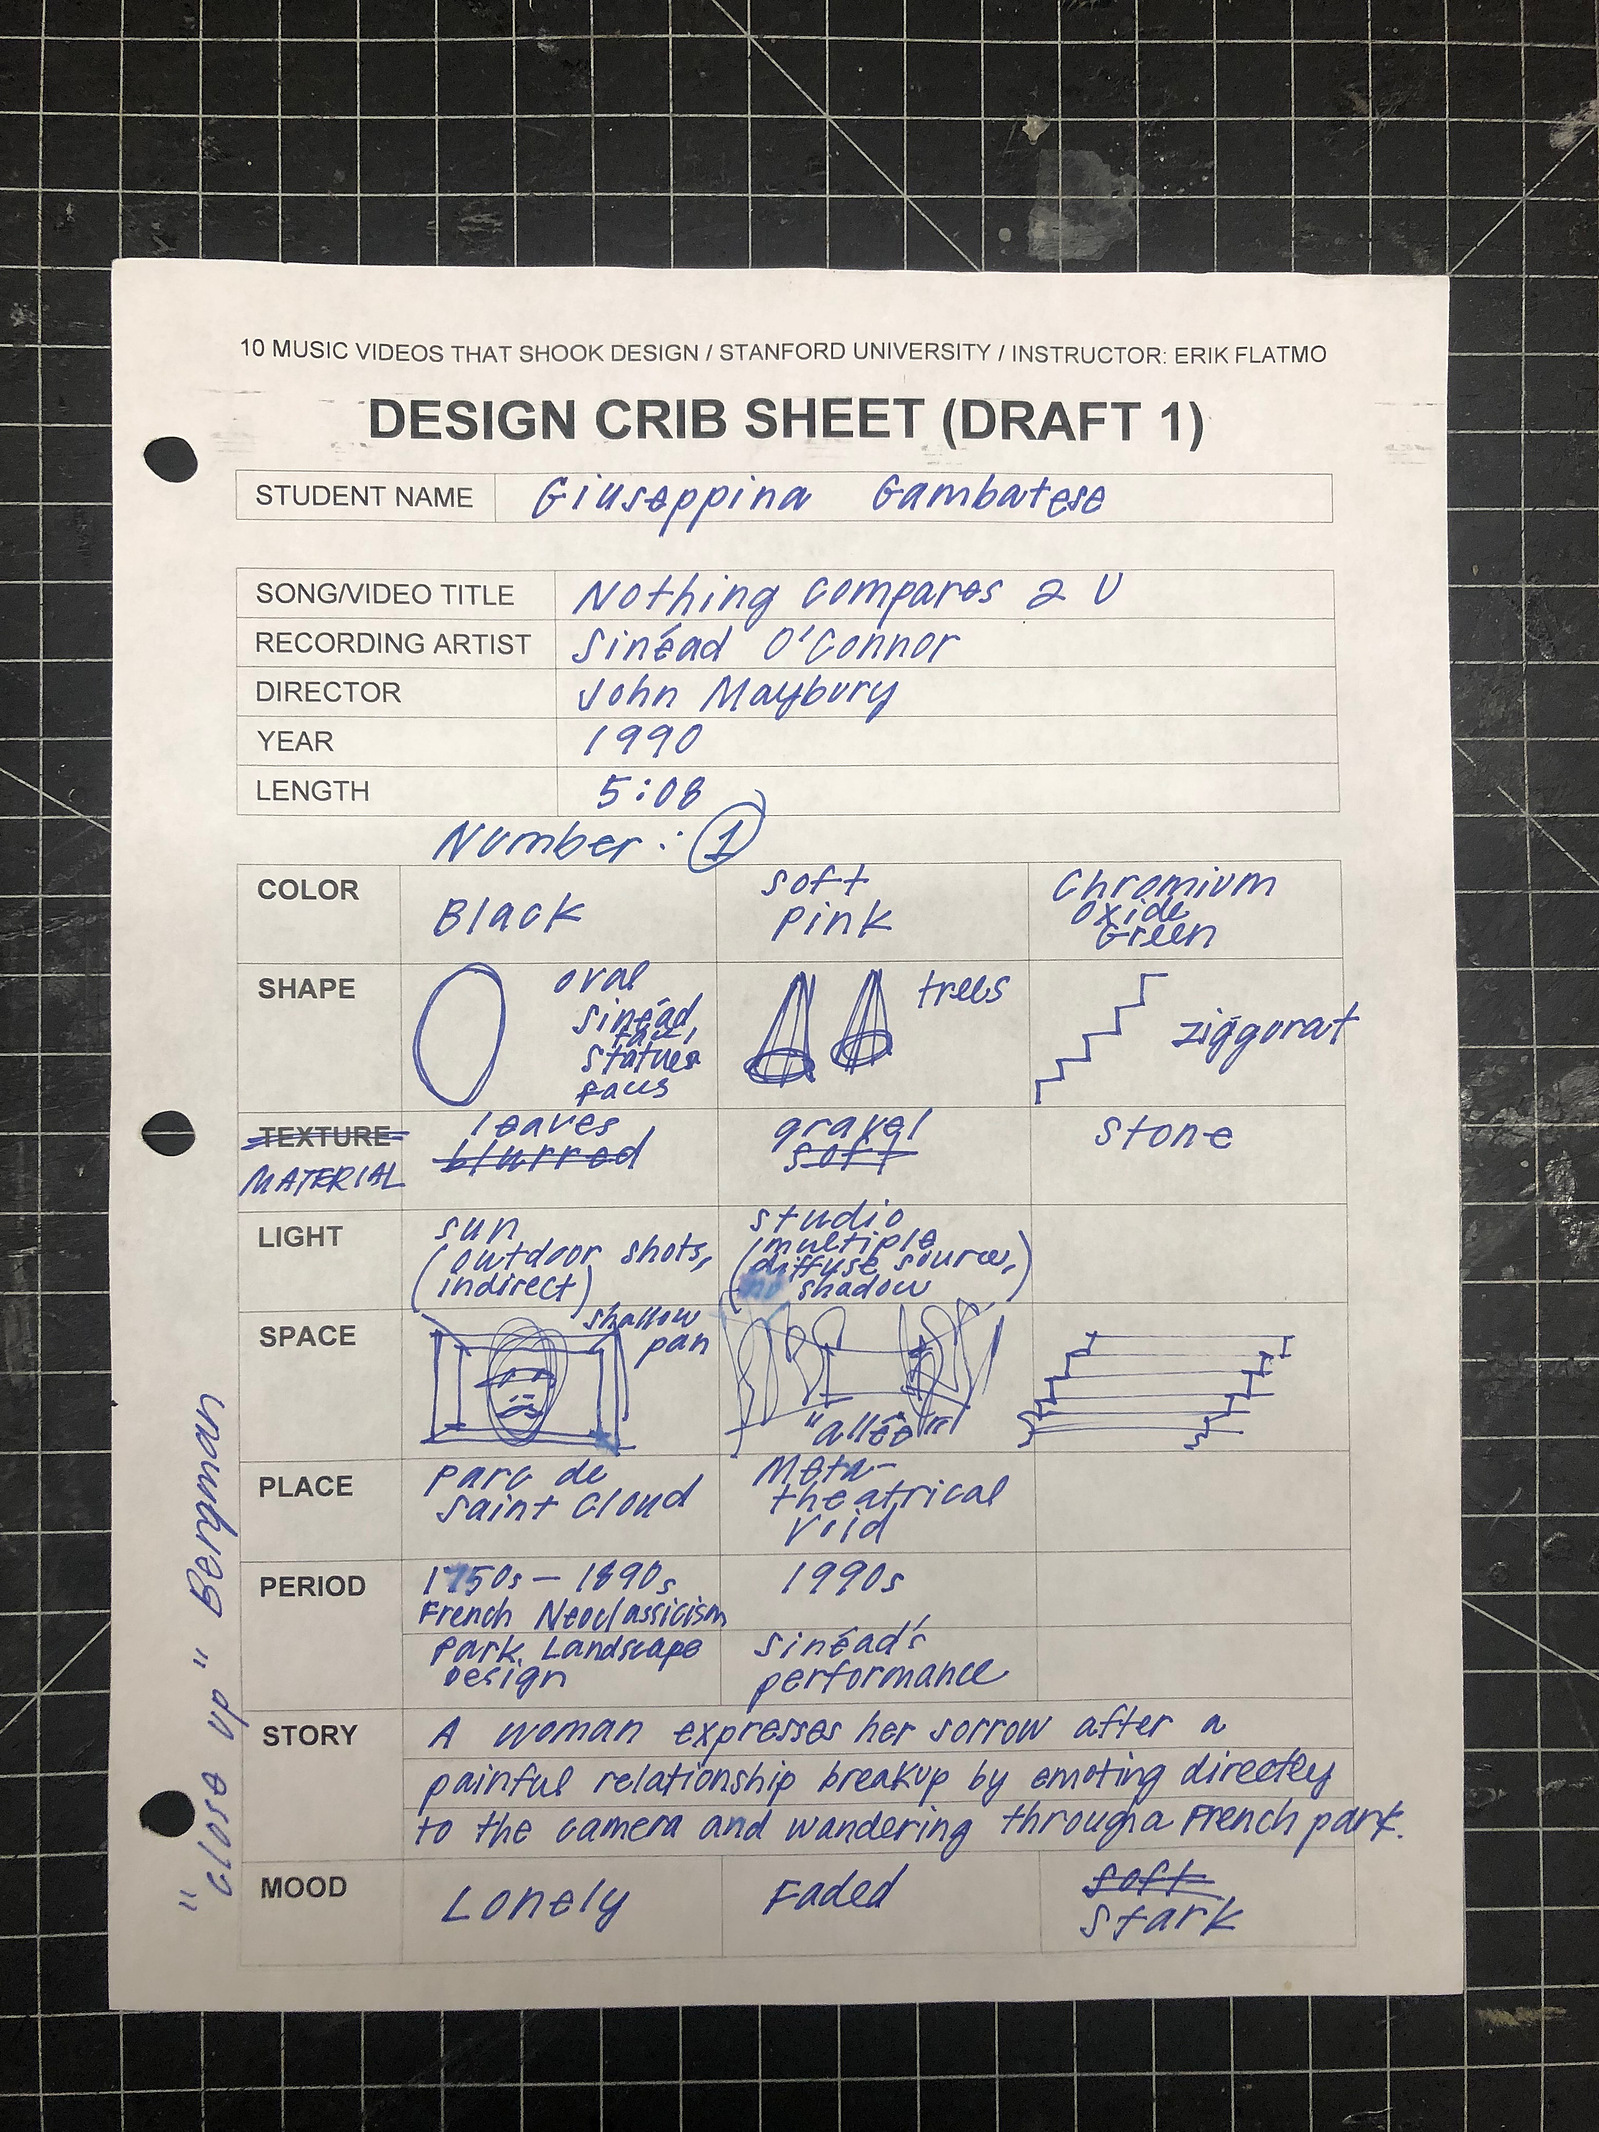 10 MUSIC VIDEOS THAT SHOOK DESIGN / STANFORD UNIVERSITY / INSTRUCTOR: ERIK FLATMO
DESIGN CRIB SHEET (DRAFT 1)
STUDENT NAME Giuseppina Gambatese
SONG/VIDEO TITLE Nothing Compares 2 U
RECORDING ARTIST Sinéad O'Connor
DIRECTOR John Maybury
YEAR 1990
LENGTH 5:08
Number: 1
COLOR
Black
soft
pink
Chromium
oxide
Green
SHAPE
oval
sinéad
face,
statues
faces
trees
ziggurat
TEXTURE
MATERIAL
leaves
blurred
gravel
soft
stone
LIGHT
sun
(outdoor shots,
indirect)
studio
(multiple
diffuse sources,)
no shadow
SPACE
shallow
pan
"allée"
PLACE
Parc de
Saint Cloud
Meta-
theatrical
void
PERIOD
1750s – 1890s
French Neoclassicism
Park Landscape
Design
1990s
Sinéad's
performance
STORY
A woman expresses her sorrow after a
painful relationship breakup by emoting directly
to the camera and wandering through a French park.
MOOD
Lonely
Faded
soft
stark
"Close up" Bergman